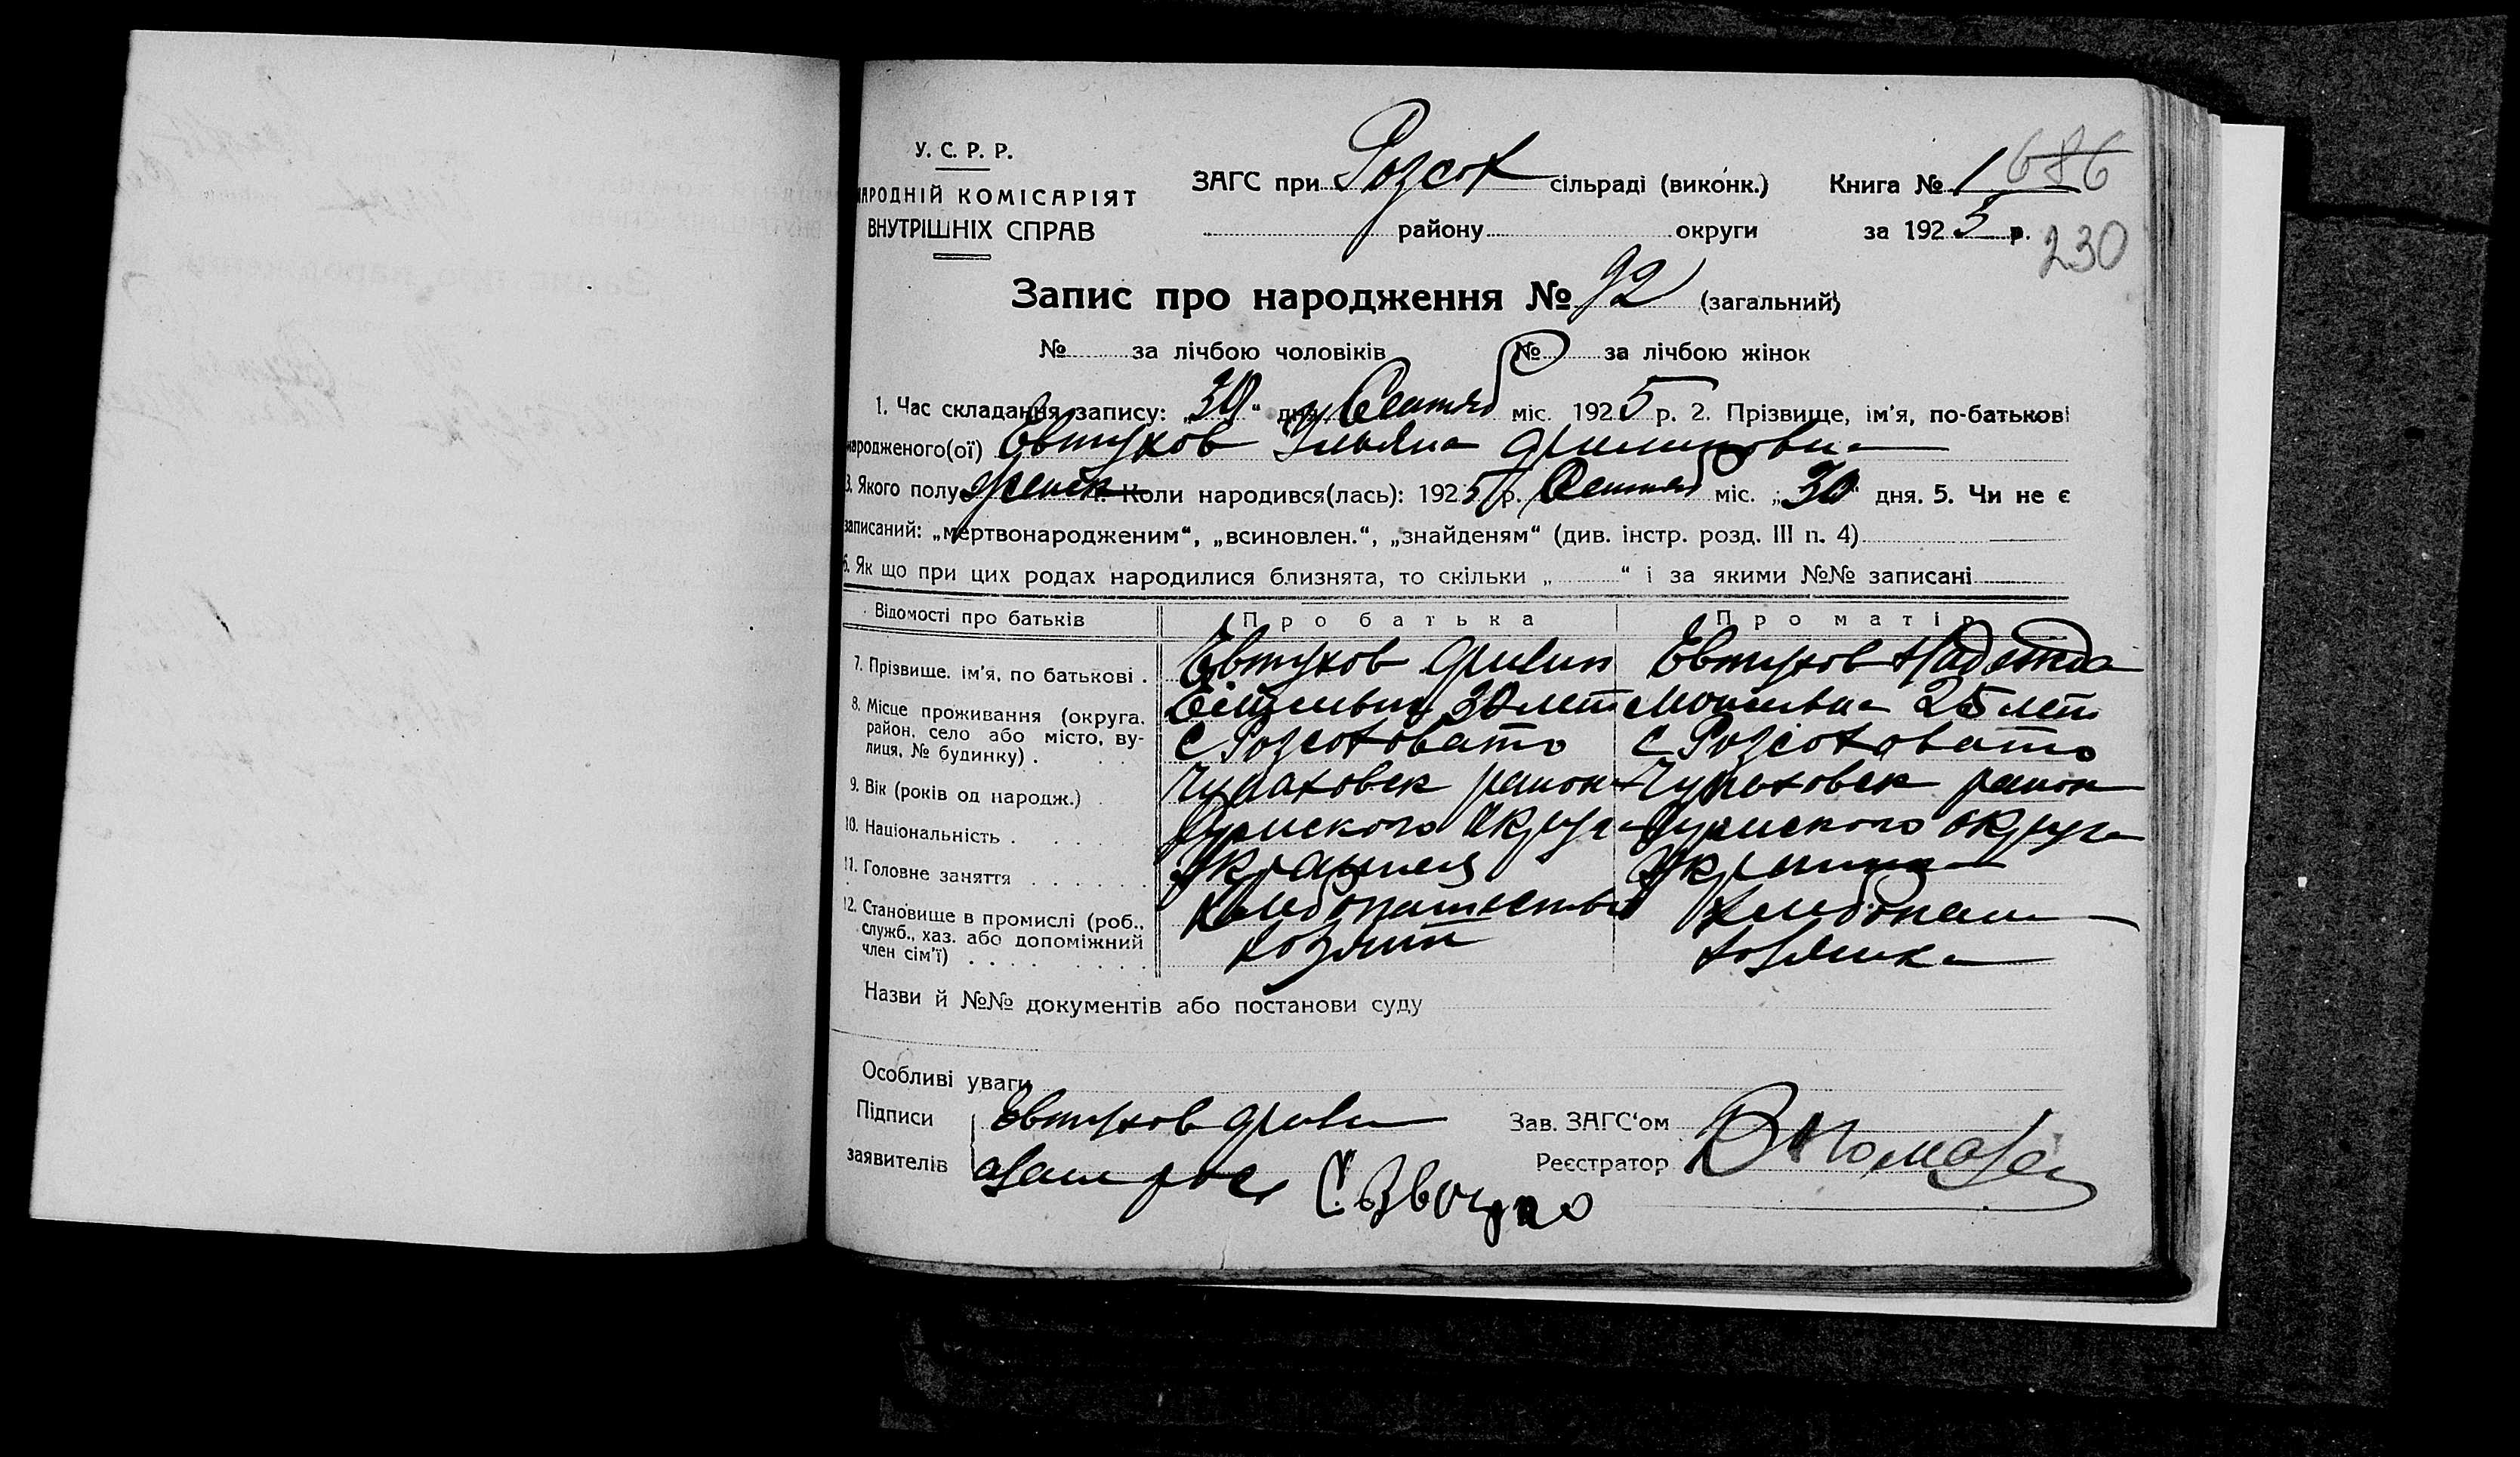 У. С. Р. Р.
АРОДНІЙ КОМІСАРІЯТ
ВНУТРІШНІХ СПРАВ
ЗАГС при Розсох сільраді (виконк.) Книга № 1 686
району округи за 1925 р. 230
Запис про народження № 92 (загальний)
№ за лічбою чоловіків № за лічбою жінок
1. Час складання запису: „30“ дня Сентяб міс. 1925 р. 2. Прізвище, ім'я, по-батькові
народженого(ої) Евтухов Ульяна Филиповна
3. Якого полу женск Коли народився(лась): 1925 р. Сентяб міс. „30“ дня. 5. Чи не є
записаний: „мертвонародженим“, „всиновлен.“, „знайденям“ (див. інстр. розд. III п. 4)
6. Як що при цих родах народилися близнята, то скільки „ “ і за якими №№ записані
Відомості про батьків Про батька Про матір
7. Прізвище. ім'я, по батькові . Евтухов Филип Евтухов Надежда
8. Місце проживання (округа, район, село або місто, вулиця, № будинку) . 30 лет 25 лет
с Розсоховато с Розсоховато
9. Вік (років од народж.) . район район
10. Національність . Сумского округа Сумского округа
11. Головне заняття . Украинец Украинка
12. Становище в промислі (роб., служб., хаз. або допоміжний член сім'ї) . Хлебопашество Хлебопаш
хозяин хозяйка
Назви й №№ документів або постанови суду
Особливі уваги
Підписи Евтухов Фили Зав. ЗАГС'ом
заявителів Реєстратор